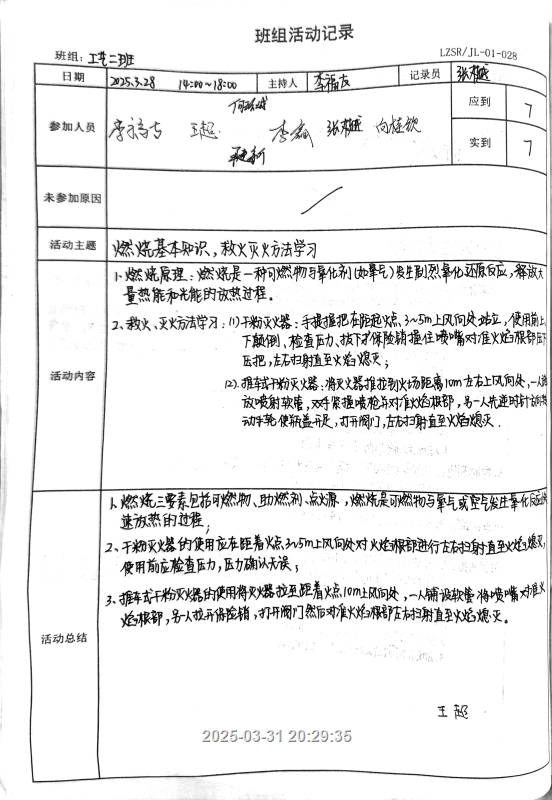 班组活动记录
LZSR/JL-01-028
班组: 工艺二班
日期 2025.3.28 14:00~18:00 主持人 李福友 记录员
应到 7
参加人员 王超 李 张 向桂钦
实到 7
未参加原因
活动主题 燃烧基本知识,救火灭火方法学习
活动内容
1、燃烧原理:燃烧是一种可燃物与氧化剂(如氧气)发生剧烈氧化还原反应,释放大
量热能和光能的放热过程。
2、救火、灭火方法学习:(1)干粉灭火器:手提握把在距起火点3~5m上风向处站立,使用前上
下颠倒、检查压力、拔下保险销握住喷嘴对准火焰根部压下
压把,左右扫射直至火焰熄灭;
(2).推车式干粉灭火器:将灭火器推拉到火场距离10m左右上风向处,一人
放喷射软管,双手紧握喷枪并对准火焰根部,另一人先逆时针
动手轮 使瓶盖开足,打开阀门,左右扫射直至火焰熄灭.
活动总结
1、燃烧三要素包括可燃物、助燃剂、点火源,燃烧是可燃物与氧气或空气发生氧化反应
速放热的过程;
2、干粉灭火器的使用应在距着火点3~5m上风向处对火焰根部进行左右扫射直至火焰熄灭,
使用前应检查压力,压力确认无误;
3、推车式干粉灭火器的使用将灭火器拉至距着火点10m上风向处,一人铺设软管将喷嘴对准火
焰根部,另一人拉开保险销,打开阀门然后对准火焰根部左右扫射直至火焰熄灭。
王超
2025-03-31 20:29:35